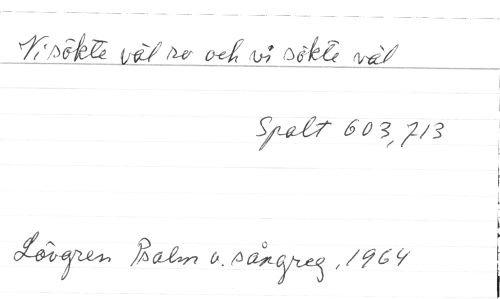 Vi sökte väl ro och vi sökte väl
Spalt 603, 713
Lövgren Psalm o. sångreg, 1964